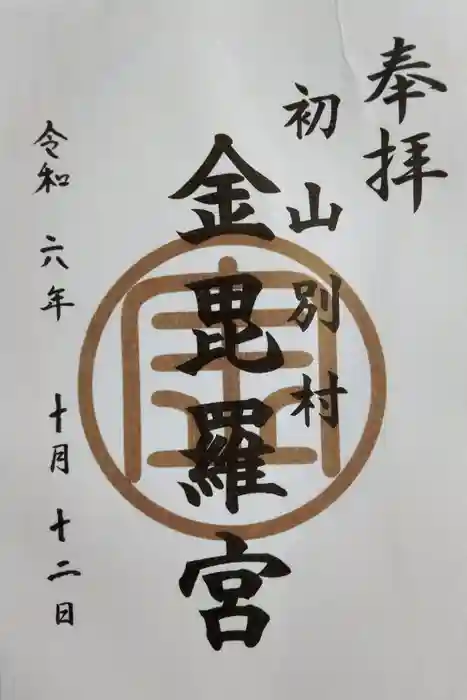 奉拝
初山別村
金毘羅宮
令和 六年 十月 十二日